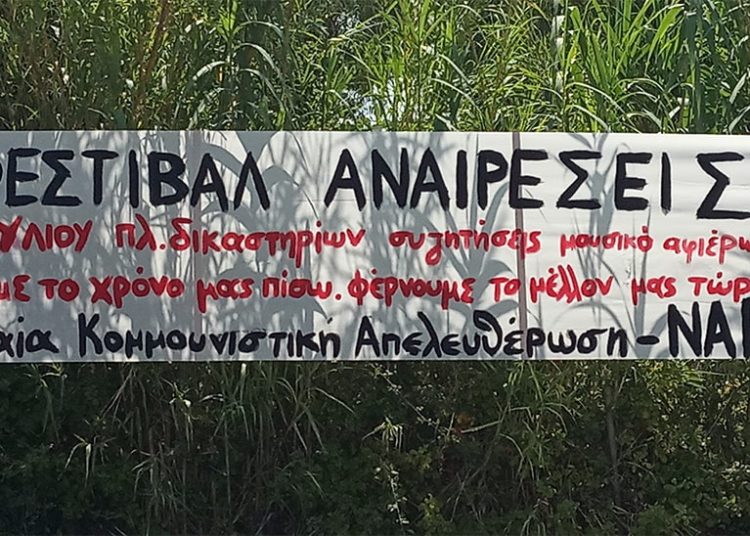 ΦΕΣΤΙΒΑΛ ΑΝΑΙΡΕΣΕΙΣ
ΥΛΙΟΥ πλ. δικαστηρίων συζητήσεις μουσικό αφιέρω
με το χρόνο μας πίσω. φέρνουμε το μέλλον μας τώρ
αία Κομμουνιστική Απελευθέρωση - ΝΑΡ